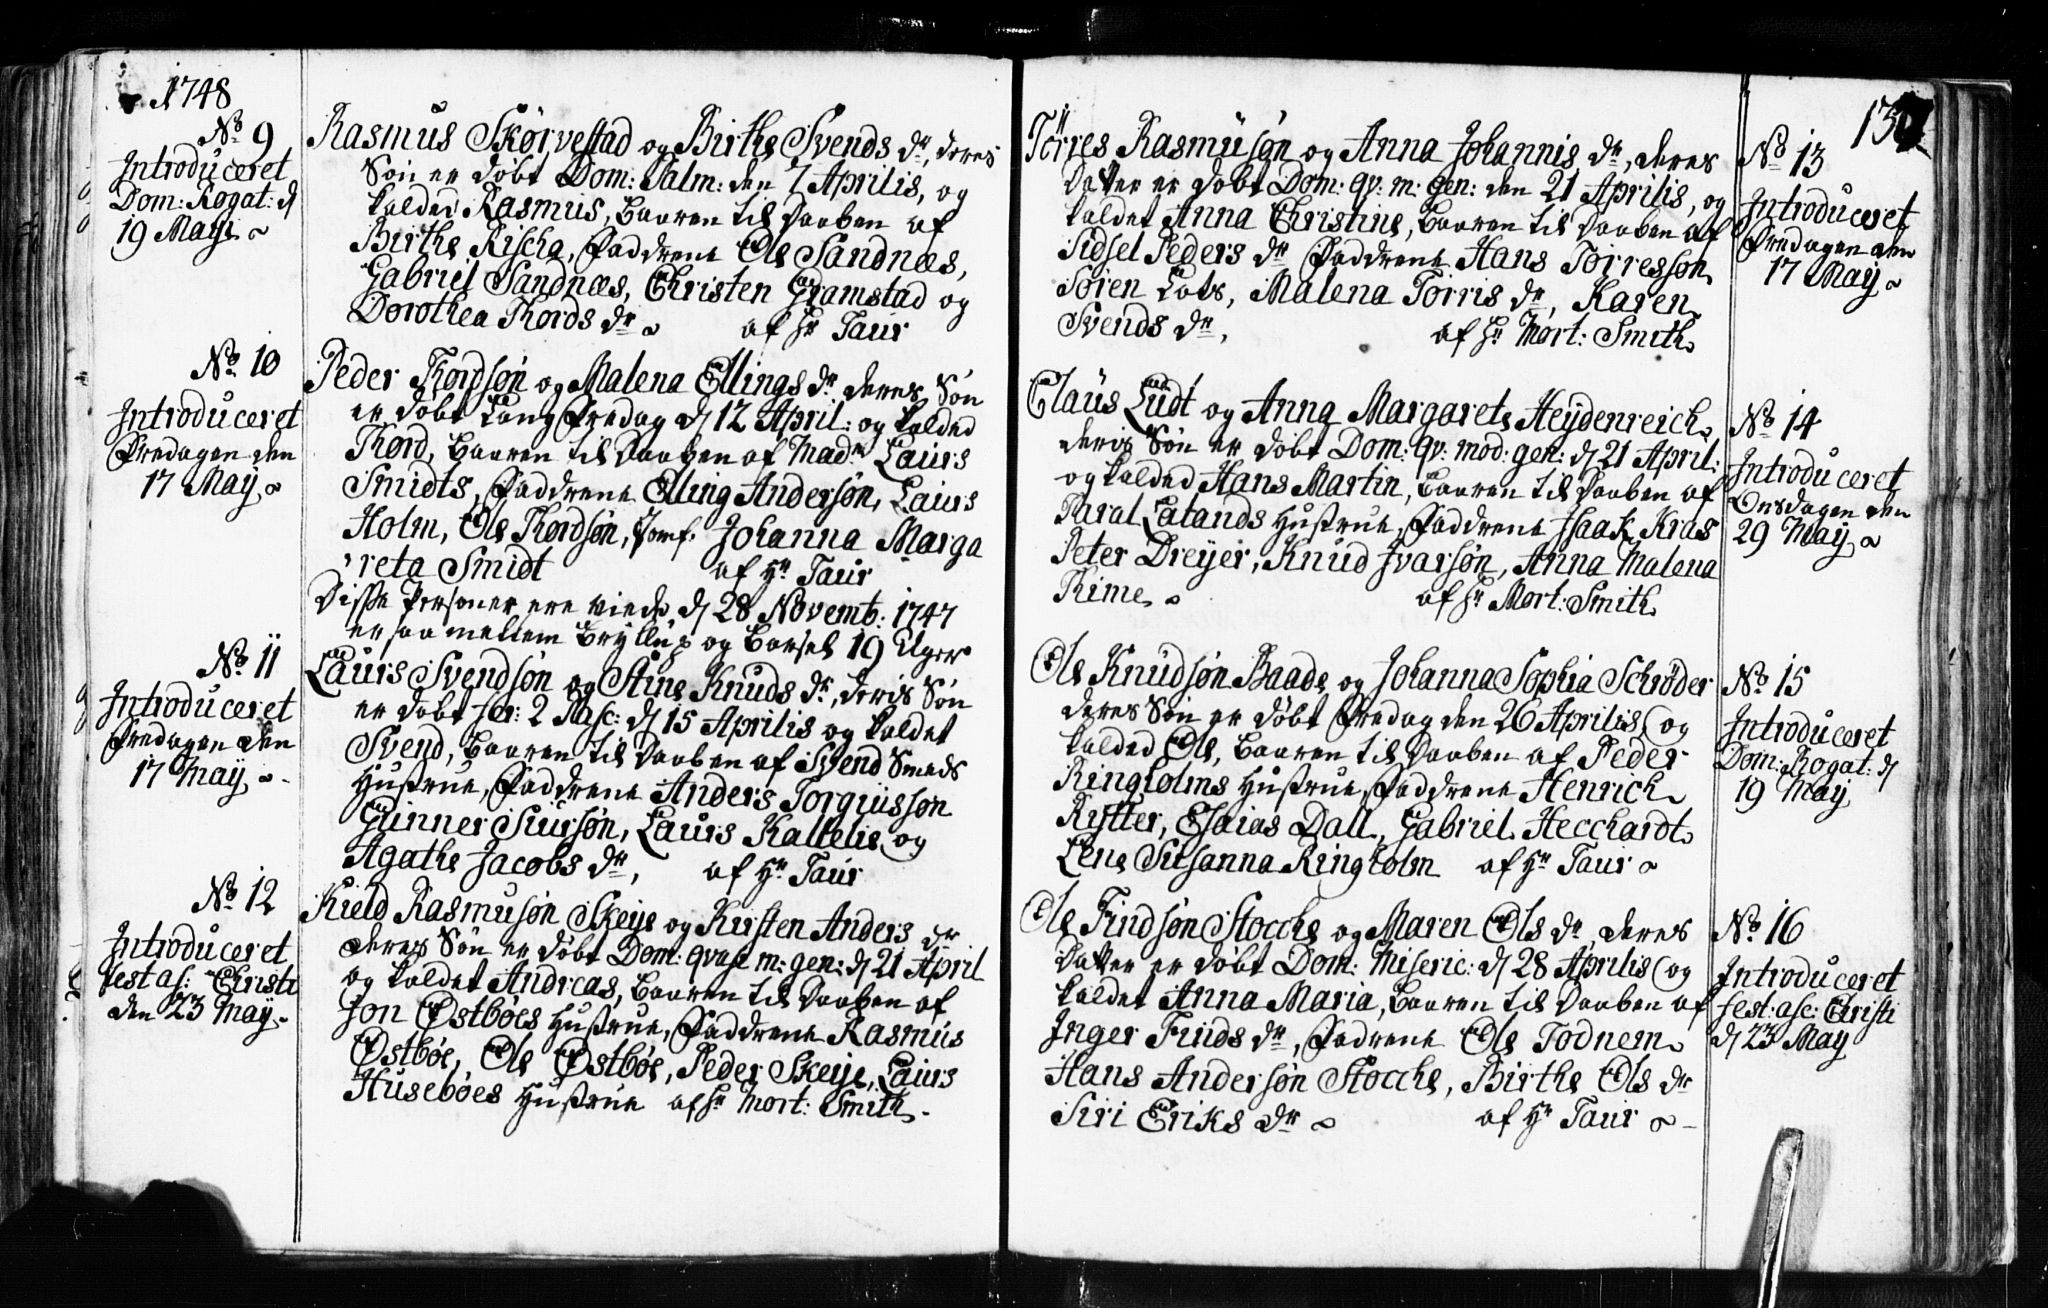 1748
No 9
Introduceret
Dom: Rogat: d
19 Maji
Rasmus Skørvestad og Birthe Svends dr, deres
Søn er døbt Dom: Palm: den 7 Aprilis, og
kalded Rasmus, baaren til Daaben af
Birthe Rische, Faddrene Ole Sandnæs,
Gabriel Sandnæs, Christen Gramstad og
Dorothea Thords dr af Hr Taur
No 10
Introduceret
Fredagen den
17 Maÿ
Peder Thordsøn og Malena Ellings dr deres Søn
er døbt Lang Fredag d 12 April: og kalded
Thord, baaren til Daaben af Made Laurs
Smidts, Faddrene Elling Andersøn, Laurs
Holm, Ole Thordsøn, Jomf. Johanna Marga
reta Smidt af Hr Taur
Disse Personer ere viede d 28 Novemb: 1747
er saa mellem Bryllup og Barsel 19 Uger
No 11
Introduceret
Fredagen den
17 Maÿ
Laurs Svendsøn og Stine Knuds dr, deris Søn
er døbt fer: 2 Pasc: d 15 Aprilis og kaldet
Svend, baaren til Daaben af Svend Smeds
Hustrue, Faddrene Anders Torguissøn
Gunner Siursøn, Laurs Kaltelie og
Agathe Jacobs dr, af Hr Taur
No 12
Introduceret
fest as: Christi
den 23 Maÿ
Kield Rasmusøn Skeije og Kirsten Anders dr
deres Søn er døbt Dom: qvasi m: gen: d 21 April
og kaldet Andreas, baaren til Daaben af
Jon Østbøes Hustrue, Faddrene Rasmus
Østbøe, Ole Østbøe, Peder Skeije, Laurs
Husebøes Hustrue af Hr Mort: Smith
Törres Rasmusøn og Anna Johannis dr, deres
Datter er døbt Dom: qv: m: gen: den 21 Aprilis, og
kaldet Anna Christine, baaren til Daaben af
Sidsel Peders dr Faddrene Hans Törressøn
Søren Lots, Malena Törris dr, Karen
Svends dr, af Hr Mort: Smith
No 13
Introduceret
Fredagen den
17 Maÿ
Claus Ludt og Anna Margarete Heydenreich
deris Søn er døbt Dom: qv: mod: gen: d 21 April:
og kalded Hans Martin, baaren til Daaben af
Paral Lalands Hustrue, Faddrene Isaak Kras
Peter Dreÿer, Knud Ivarsøn, Anna Malena
Rime af Hr Mort: Smith
No 14
Introduceret
Onsdagen den
29 Maÿ
Ole Knudsøn Baade og Johanna Sophia Schrøder
deres Søn er døbt Fredag den 26 Aprilis, og
kalded Ole, baaren til Daaben af Peder
Ringholms Hustrue, Faddrene Henrich
Rytter, Esaias Dall, Gabriel Hecchardt
Lene Susanna Ringholm af Hr Taur
No 15
Introduceret
Dom: Rogat: d
19 Maÿ
Ole Findsøn Stocche og Maren Ols dr, deres
Datter er døbt Dom: Miseric: d 28 Aprilis, og
kaldet Anna Maria, baaren til Daaben af
Inger Finds dr, Fadrene Ole Todnem
Hans Andersøn Stocche, Birthe Ols dr
Siri Eriks dr af Hr Taur
No 16
Introduceret
fest: asc: Christi
d 23 Maÿ